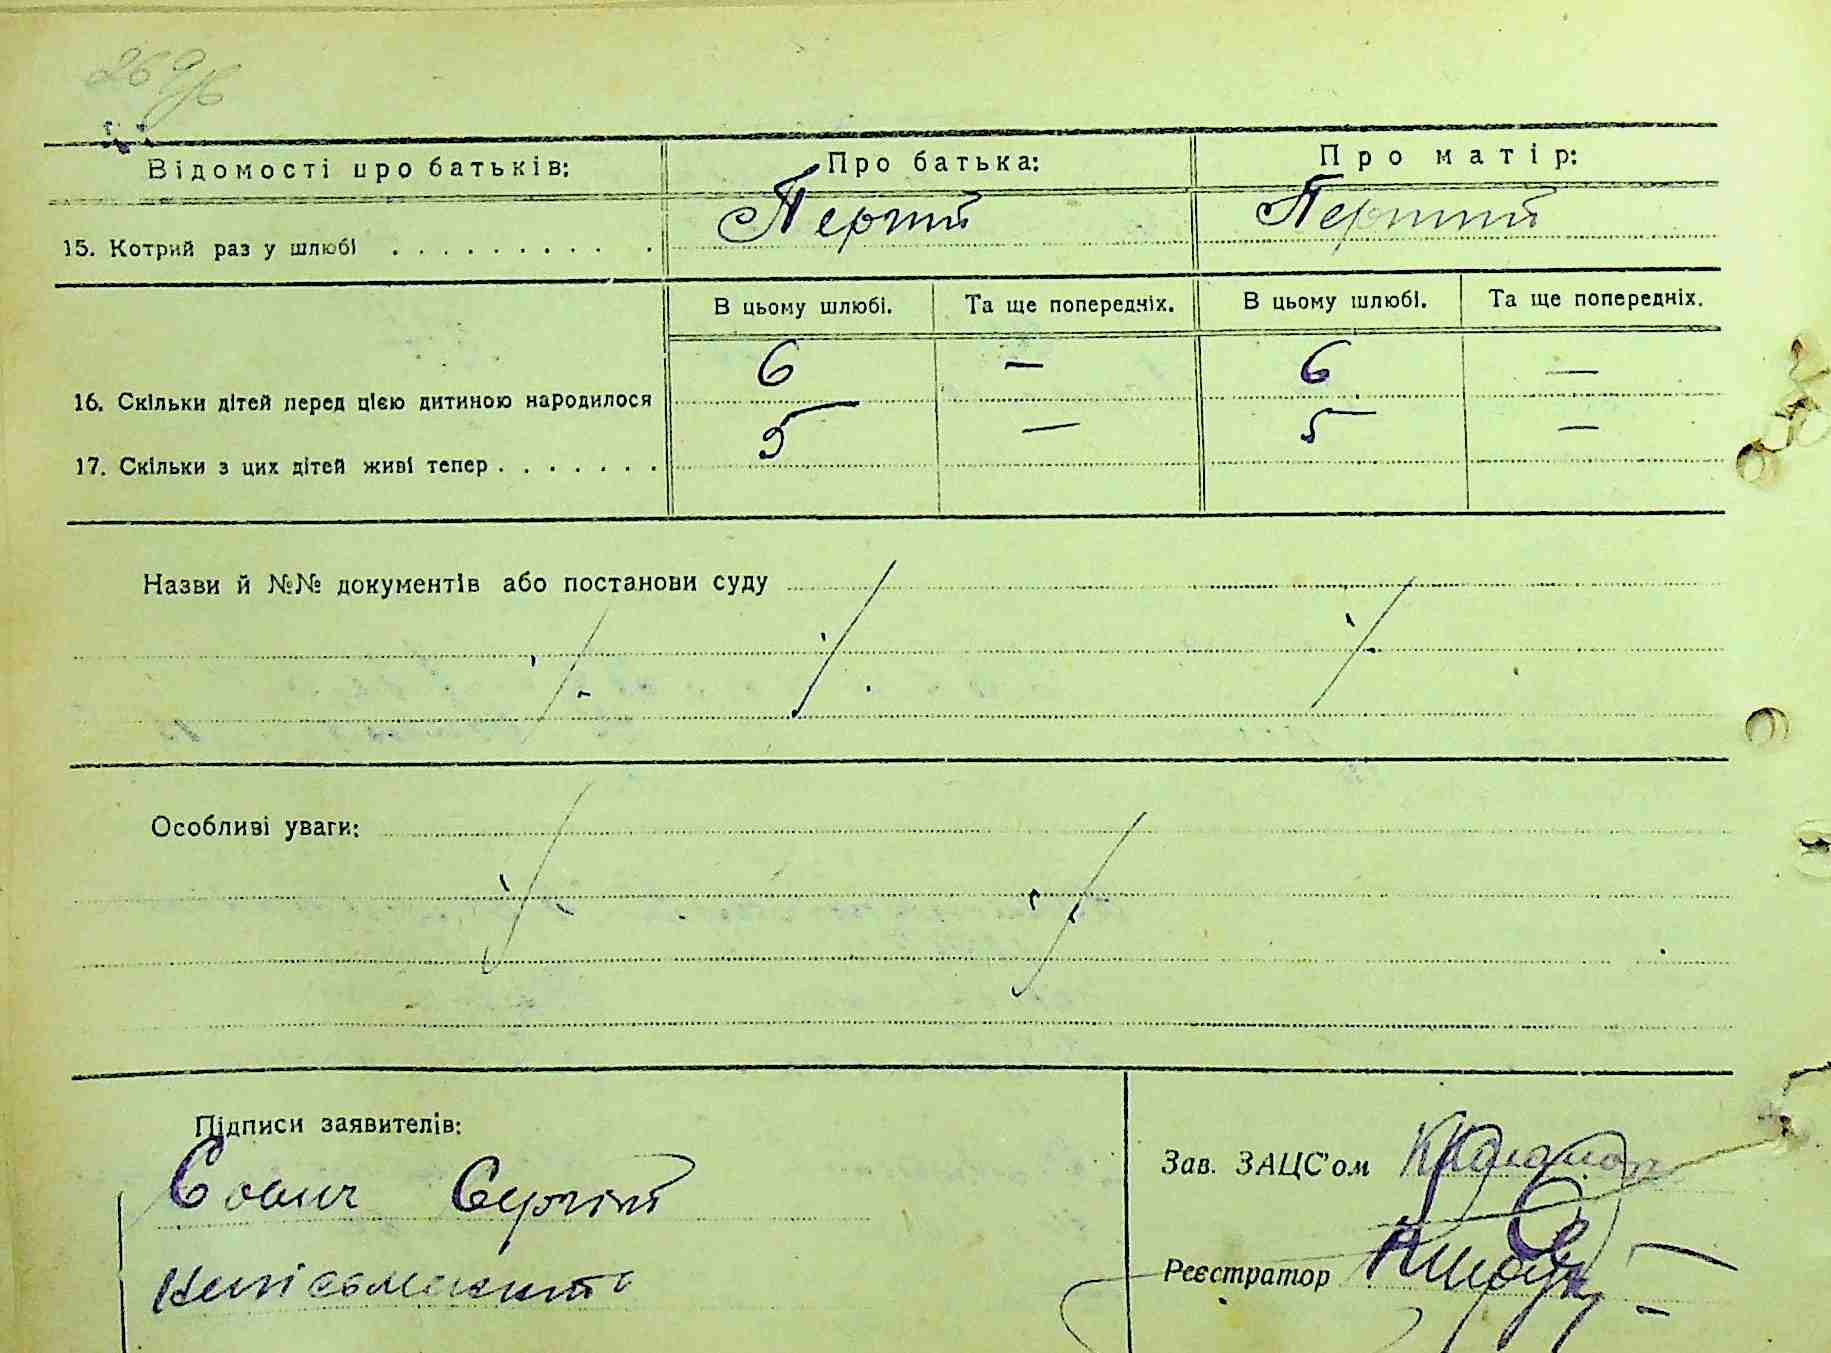 269/б
Відомості про батьків: Про батька: Про матір:
15. Котрий раз у шлюбі . . . . . . . . . . Перший Перший
В цьому шлюбі. Та ще попередніх. В цьому шлюбі. Та ще попередніх.
16. Скільки дітей перед цією дитиною народилося 6 — 6 —
17. Скільки з цих дітей живі тепер . . . . . . . 5 — 5 —
Назви й №№ документів або постанови суду
Особливі уваги:
Підписи заявителів:
Сергій
Зав. ЗАЦС'ом
Реєстратор